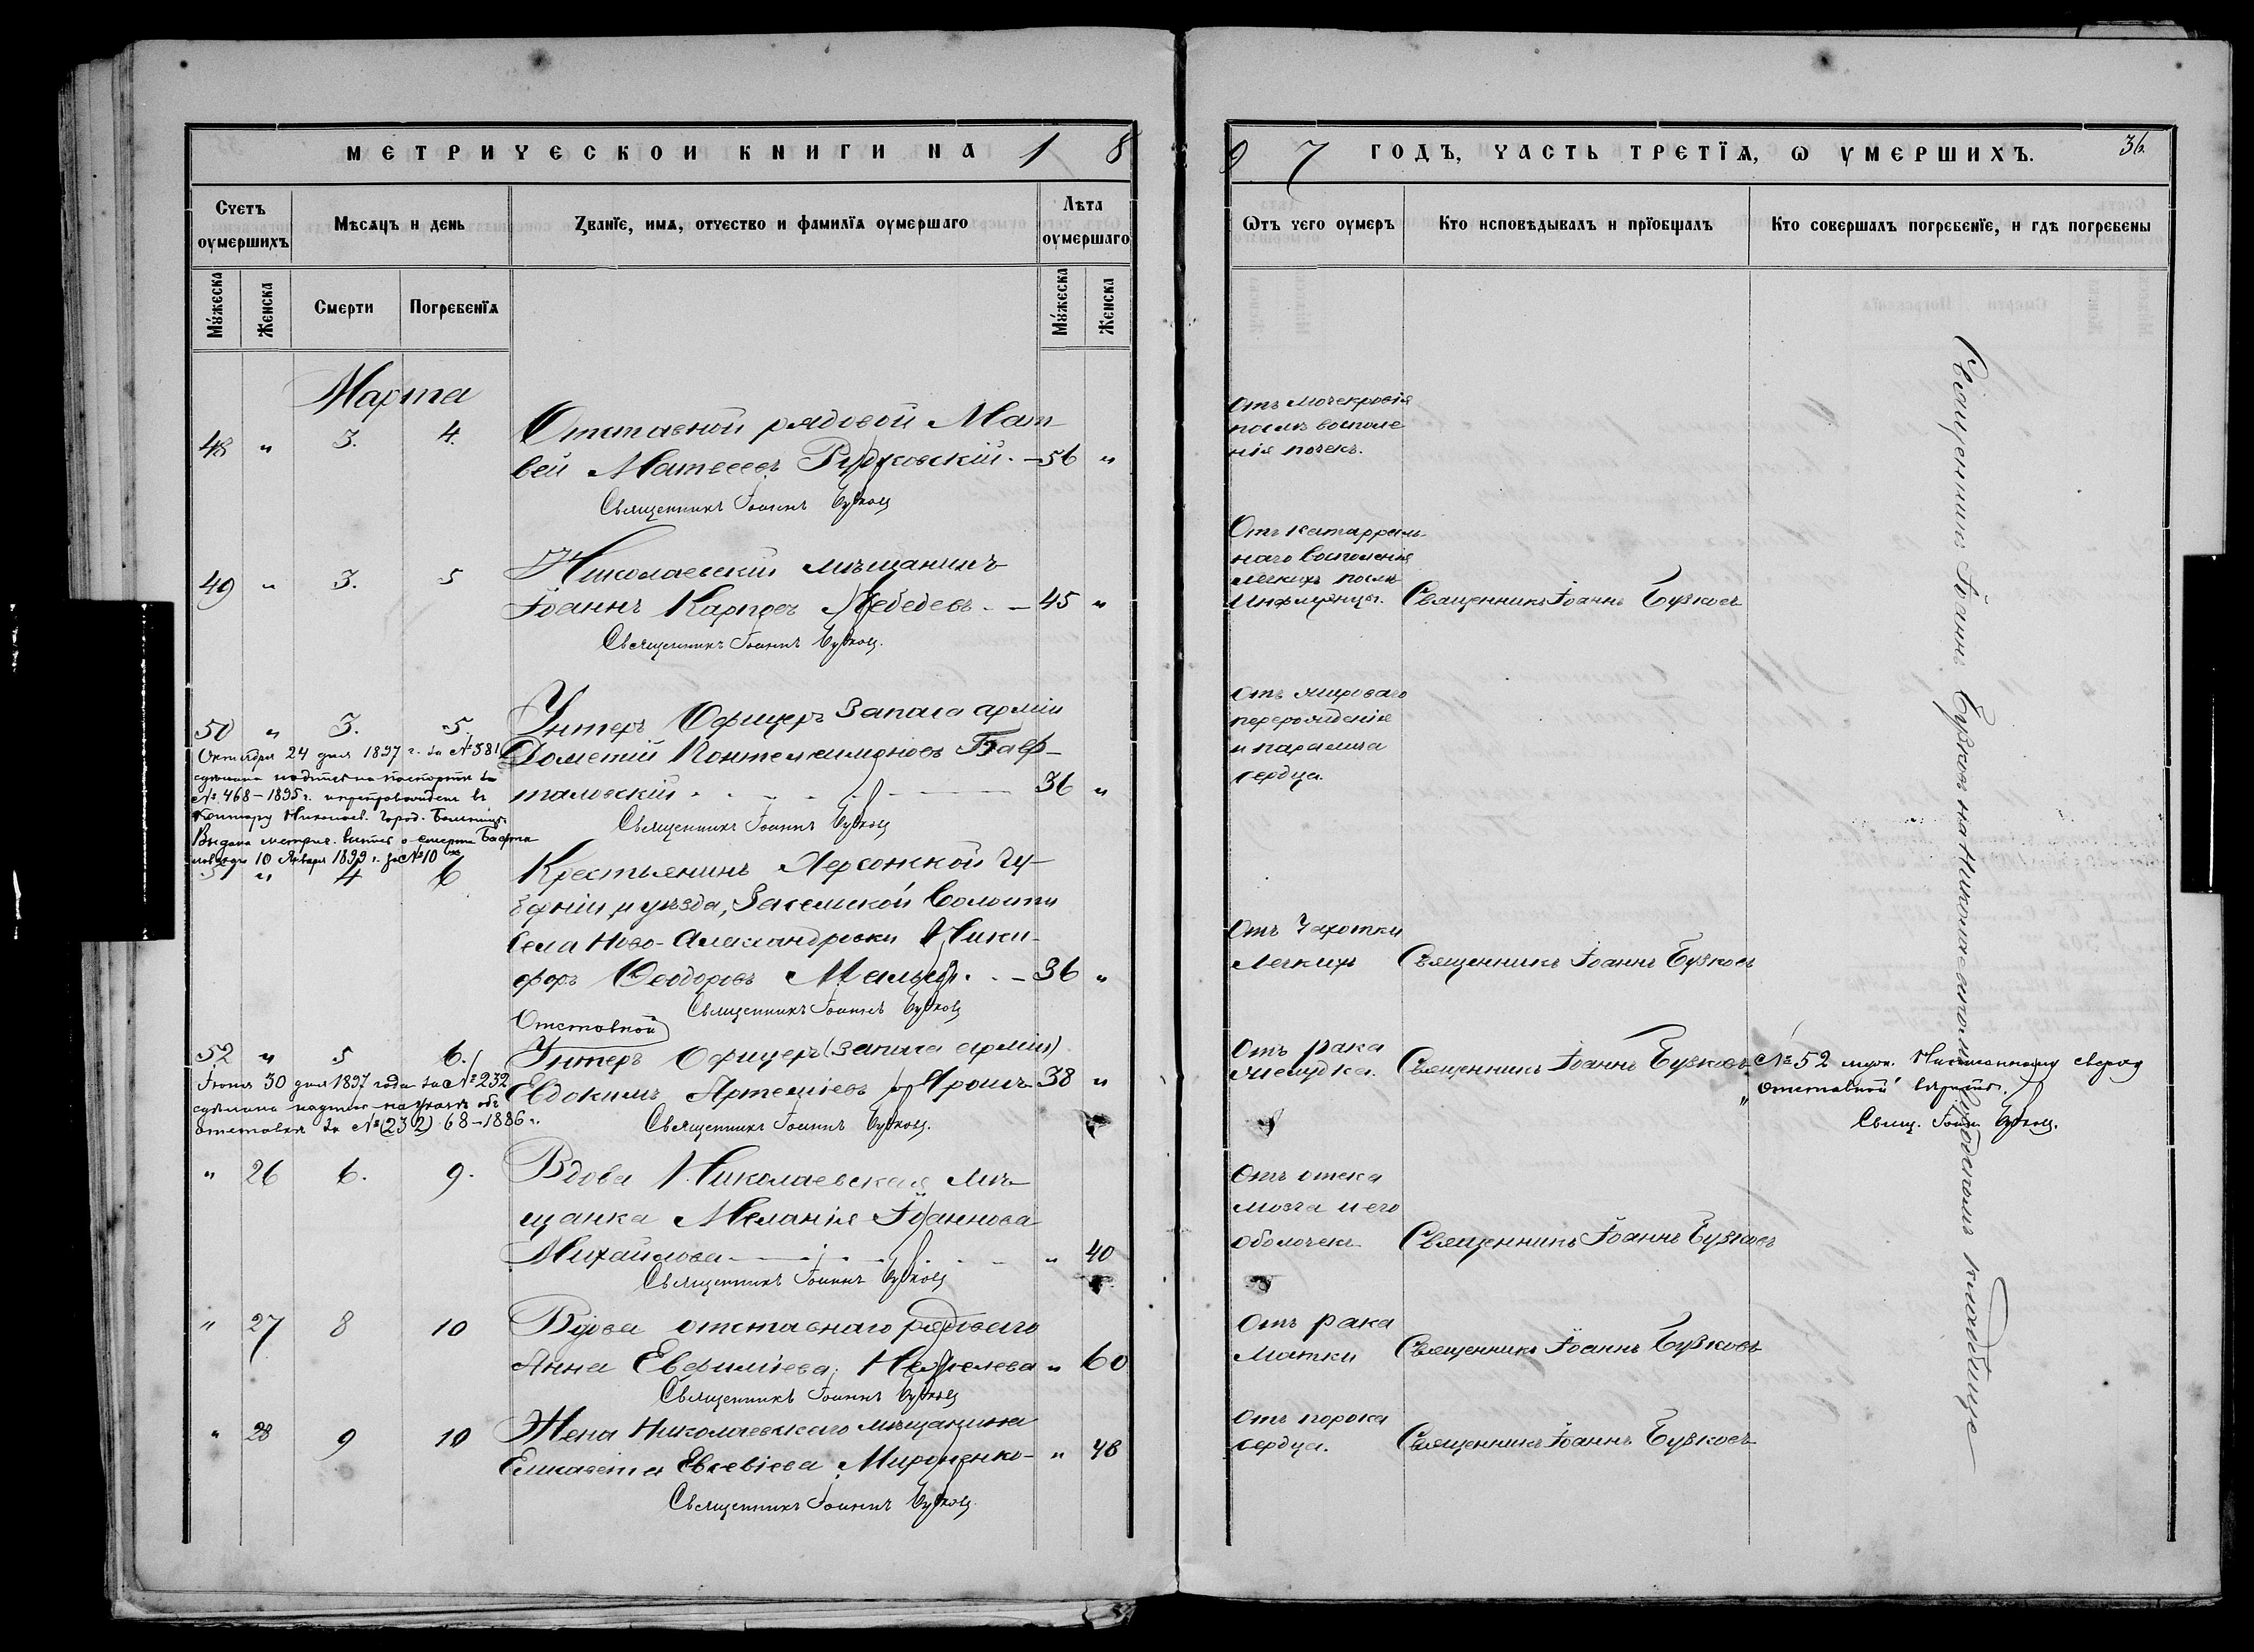 МЕТРИЧЕСКОЙ КНИГИ НА 18
97 ГОДЪ, ЧАСТЬ ТРЕТІЯ, Ѡ УМЕРШИХЪ.
36.
Счетъ оумершихъ
Мѣсяцъ и день
Званїе, имя, отчество и фамилїя оумершаго
Лѣта оумершаго
Ѿтъ чего оумеръ
Кто исповѣдывалъ и прїобщалъ
Кто совершалъ погребенїе, и гдѣ погребены
Мужеска
Женска
Смерти
Погребенїя
Мужеска
Женска
Марта
48 " 3. 4. Отставной рядовой Мат-
вей Матвеевъ Рудковскій. — 56 "
Священникъ Іоаннъ Бузковъ
Отъ мочекровія
послѣ воспале
нія почекъ.
49 " 3. 5 Николаевскій мѣщанинъ
Іоаннъ Карповъ Лебедевъ. — 45 "
Священникъ Іоаннъ Бузковъ.
Отъ катарраль-
наго воспаленія
легкихъ послѣ
Инфлуэнцы. Священникъ Іоаннъ Бузковъ
50 " 3. 5. Унтеръ Офицеръ запаса арміи
Дометій Пантелеимоновъ Бафта-
таловскій 36 "
Священникъ Іоаннъ Бузковъ
Октября 24 дня 1897 г. за № 381
сдѣлана надпись на паспортѣ за
№ 468 – 1895 г. и препровожденъ въ
Контору Николаев. Город. Больницы
Выдана метрич. выпись о смерти Бафта
ловскаго 10 Января 1899 г. за № 10
Отъ жироваго
перерожденія
и паралича
сердца.
51 " 4 6 Крестьянинъ Херсонской Гу-
берніи и уѣзда, Засельской Волости
Села Ново-Александровки Ники-
форъ Ѳеодоровъ 36 "
Священникъ Іоаннъ Бузковъ
Отъ Чахотки
Легкихъ Священникъ Іоаннъ Бузковъ
Отставной
52 " 5 6. Унтеръ Офицеръ (запаса арміи)
Евдокимъ Артеміевъ Ярошъ 38 "
Священникъ Іоаннъ Бузковъ.
Іюня 30 дня 1897 года за № 232
сдѣлана надпись на указѣ объ
отставкѣ за № (232) 68–1886 г.
Отъ рака
желудка. Священникъ Іоаннъ Бузковъ
№ 52 муж. Написанному сверху
"отставной" вѣрить.
Свящ. Іоаннъ Бузковъ.
" 26 6. 9. Вдова Николаевская мѣ-
щанка Меланія Іоаннова
Михайлова " 40
Священникъ Іоаннъ Бузковъ
Отъ отека
мозга и его
оболочекъ Священникъ Іоаннъ Бузковъ
" 27 8 10 Вдова отставнаго рядоваго
Анна Евфиміева " 60
Священникъ Іоаннъ Бузковъ
Отъ рака
Матки Священникъ Іоаннъ Бузковъ
" 28 9 10 Жена Николаевскаго мѣщанина
Елисавета Евсевіева Мироненко — " 48
Священникъ Іоаннъ Бузковъ.
Отъ порока
сердца. Священникъ Іоаннъ Бузковъ
Священникъ Іоаннъ Бузковъ на Николаевскомъ Городскомъ кладбище